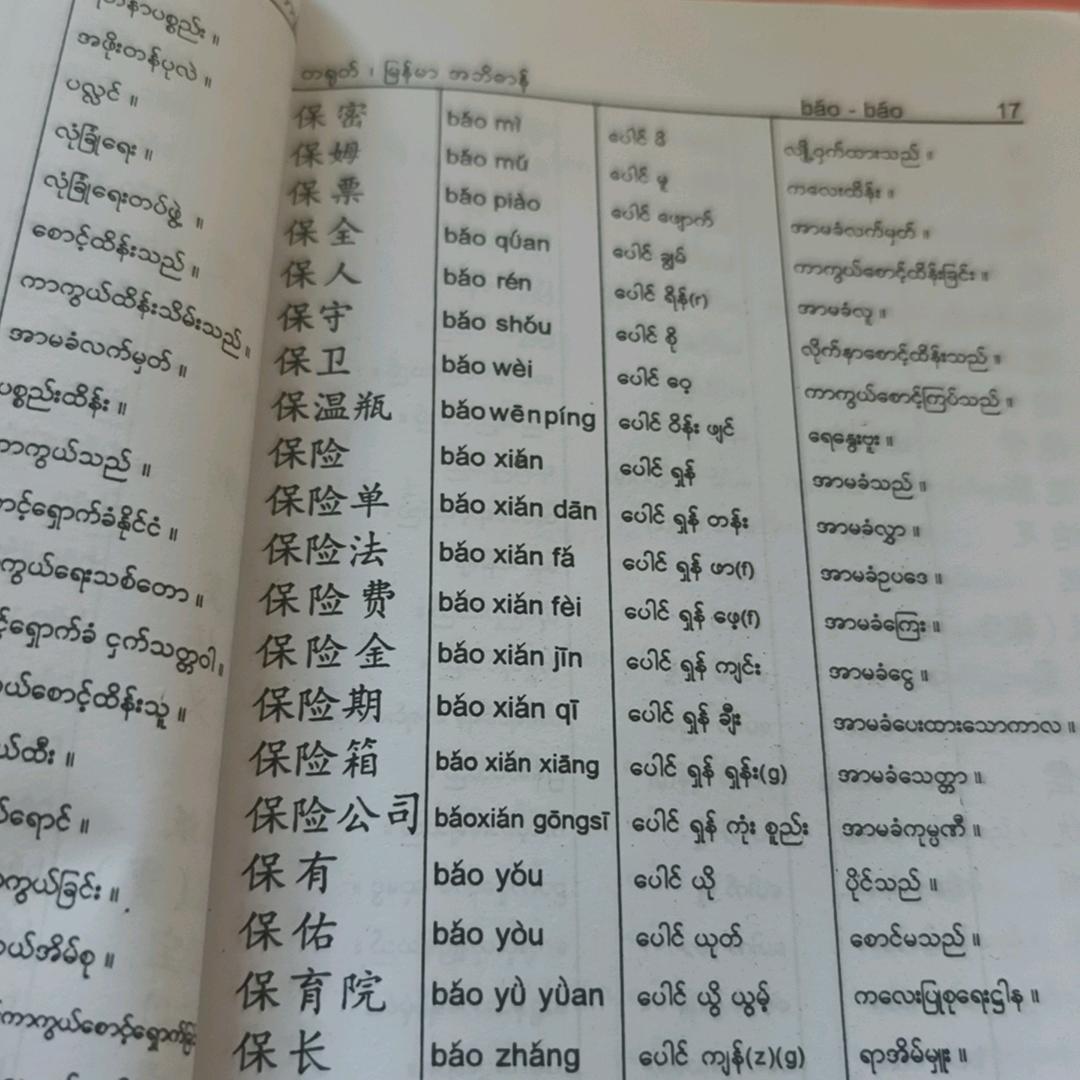 တနာပစ္စည်း ။
အဖိုးတန်ပုလဲ ။
ပလ္လင် ။
လုံခြုံရေး ။
လုံခြုံရေးတပ်ဖွဲ့ ။
စောင့်ထိန်းသည် ။
ကာကွယ်ထိန်းသိမ်းသည် ။
အာမခံလက်မှတ် ။
ပစ္စည်းထိန်း ။
ကာကွယ်သည် ။
ရှောက်ခံနိုင်ငံ ။
ကွယ်ရေးသစ်တော ။
ရှောက်ခံ ငှက်သတ္တဝါ ။
ယ်စောင့်ထိန်းသူ ။
ယ်ထီး ။
ရောင် ။
ကွယ်ခြင်း ။
ယ်အိမ်စု ။
ကာကွယ်စောင့်ရှောက်
တရုတ် ၊ မြန်မာ အဘိဓာန် bǎo - bǎo 17
保密 bǎo mì ပေါင် မိ လျှို့ဝှက်ထားသည် ။
保姆 bǎo mǔ ပေါင် မူ ကလေးထိန်း ။
保票 bǎo piào ပေါင် ဖျောက် အာမခံလက်မှတ် ။
保全 bǎo qúan ပေါင် ချွမ် ကာကွယ်စောင့်ထိန်းခြင်း ။
保人 bǎo rén ပေါင် ရိန်(r) အာမခံလူ ။
保守 bǎo shǒu ပေါင် စို လိုက်နာစောင့်ထိန်းသည် ။
保卫 bǎo wèi ပေါင် ဝေ့ ကာကွယ်စောင့်ကြပ်သည် ။
保温瓶 bǎo wēn píng ပေါင် ဝိန်း ဖျင် ရေနွေးဗူး ။
保险 bǎo xiǎn ပေါင် ရှန် အာမခံသည် ။
保险单 bǎo xiǎn dān ပေါင် ရှန် တန်း အာမခံလွှာ ။
保险法 bǎo xiǎn fǎ ပေါင် ရှန် ဖာ(f) အာမခံဥပဒေ ။
保险费 bǎo xiǎn fèi ပေါင် ရှန် ဖေ့(f) အာမခံကြေး ။
保险金 bǎo xiǎn jīn ပေါင် ရှန် ကျင်း အာမခံငွေ ။
保险期 bǎo xiǎn qī ပေါင် ရှန် ချီး အာမခံပေးထားသောကာလ ။
保险箱 bǎo xiǎn xiāng ပေါင် ရှန် ရှန်း(g) အာမခံသေတ္တာ ။
保险公司 bǎoxiǎn gōngsī ပေါင် ရှန် ကုံး စူည်း အာမခံကုမ္ပဏီ ။
保有 bǎo yǒu ပေါင် ယို ပိုင်သည် ။
保佑 bǎo yòu ပေါင် ယုတ် စောင်မသည် ။
保育院 bǎo yù yùan ပေါင် ယွိ ယွမ့် ကလေးပြုစုရေးဌါန ။
保长 bǎo zhǎng ပေါင် ကျန်(z)(g) ရာအိမ်မှူး ။